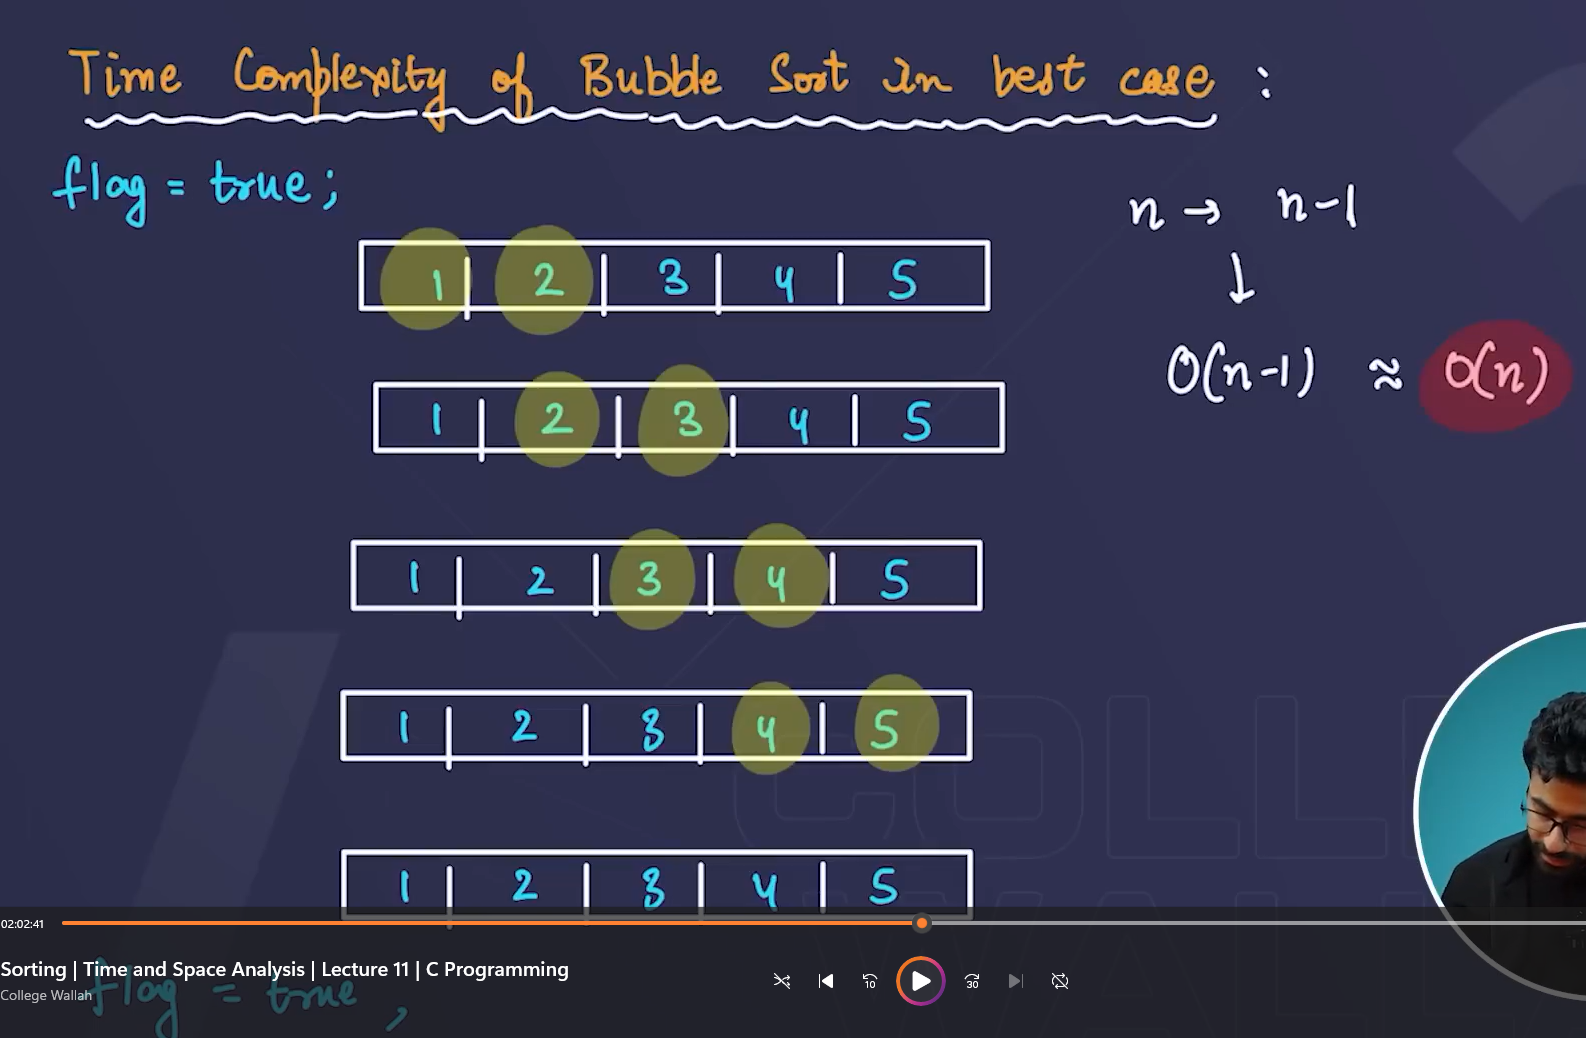 Time Complexity of Bubble Sort in best case :
flag = true;
n → n-1
↓
1 2 3 4 5
O(n-1) ≈ O(n)
1 2 3 4 5
1 2 3 4 5
1 2 3 4 5
COLLE
1 2 3 4 5
WALL
02:02:41
Sorting | Time and Space Analysis | Lecture 11 | C Programming
College Wallah
flag = true ,
10 30